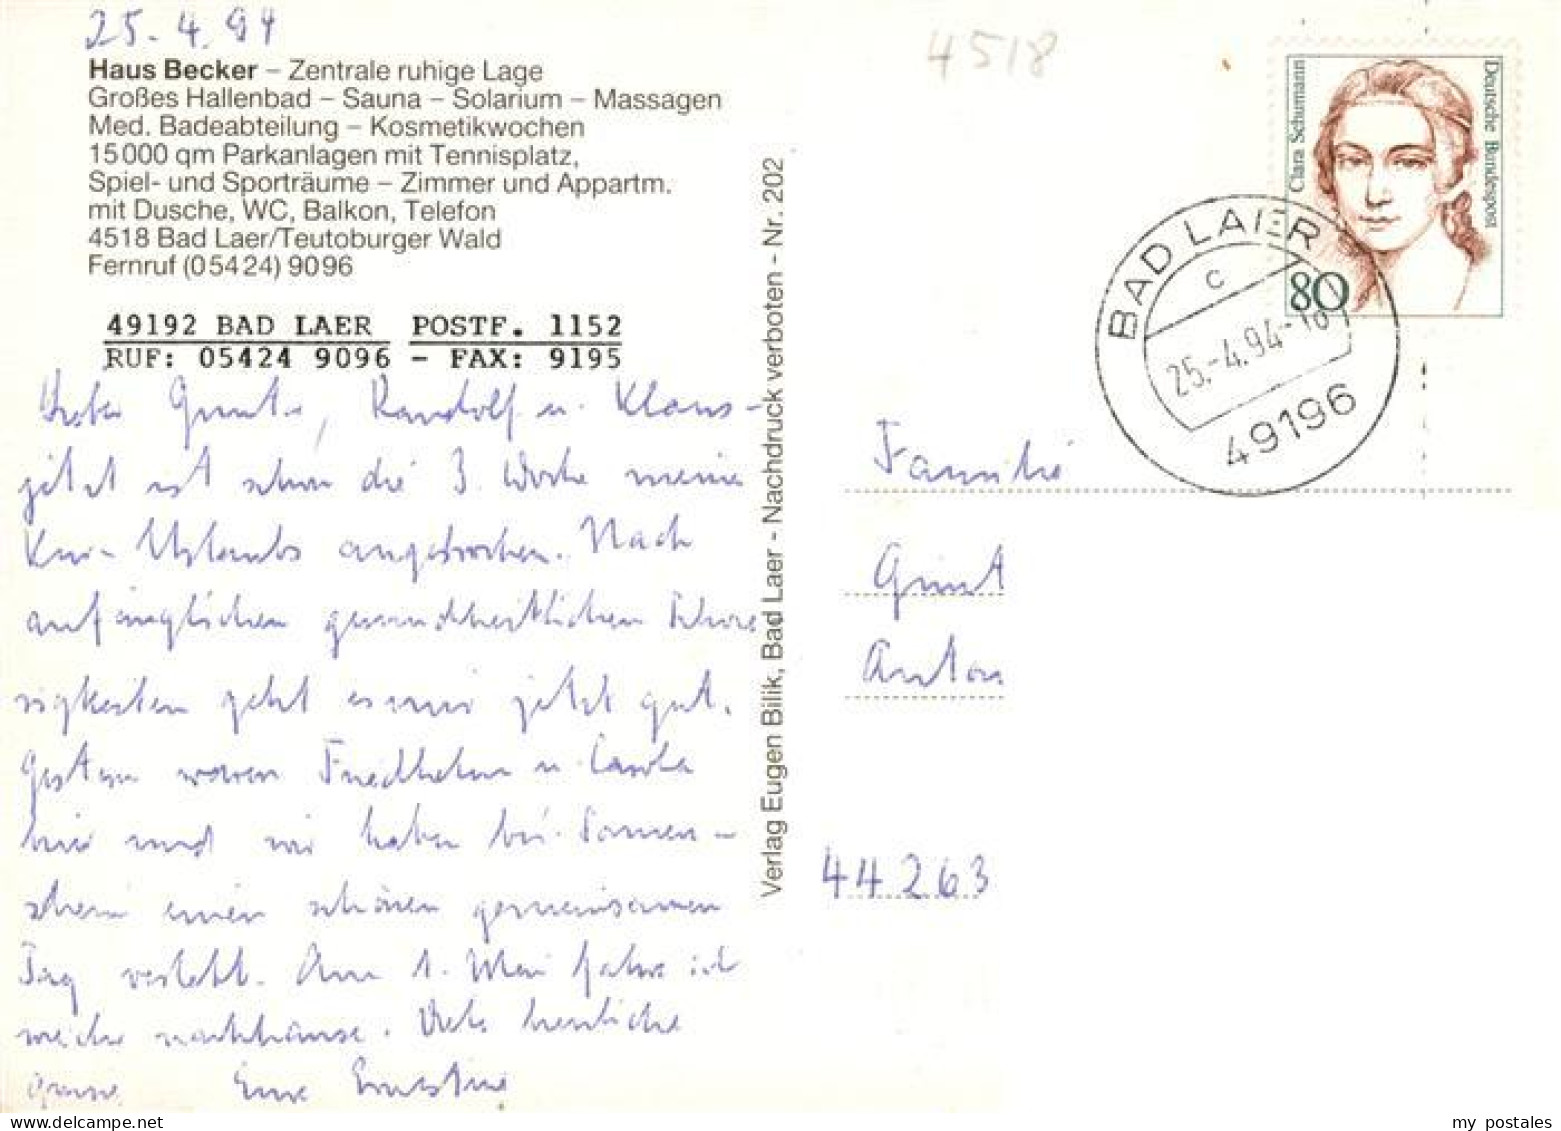 25.4.94
Haus Becker – Zentrale ruhige Lage
Großes Hallenbad – Sauna – Solarium – Massagen
Med. Badeabteilung – Kosmetikwochen
15 000 qm Parkanlagen mit Tennisplatz,
Spiel- und Sporträume – Zimmer und Appartm.
mit Dusche, WC, Balkon, Telefon
4518 Bad Laer/Teutoburger Wald
Fernruf (0 54 24) 90 96
49192 BAD LAER POSTF. 1152
RUF: 05424 9096 – FAX: 9195
Randolf u. Klaus-
jetzt ist schon die 3. Woche meines
Kur-Urlaubs angebrochen. Nach
anfänglichen gesundheitlichen Schwie-
rigkeiten geht es mir jetzt gut.
Gestern waren Friedhelm u.
hier und wir haben bei Sonnen-
schein einen schönen gemeinsamen
Tag verlebt. Am 1. Mai fahre ich
wieder nachhause. Viele herzliche
Grüsse Eure Ernestine
Verlag Eugen Bilik, Bad Laer - Nachdruck verboten - Nr. 202
4518
Clara Schumann
Deutsche Bundespost
80
BAD LAER
c
25.-4.94-18
49196
Familie
Anton
44263
my postales